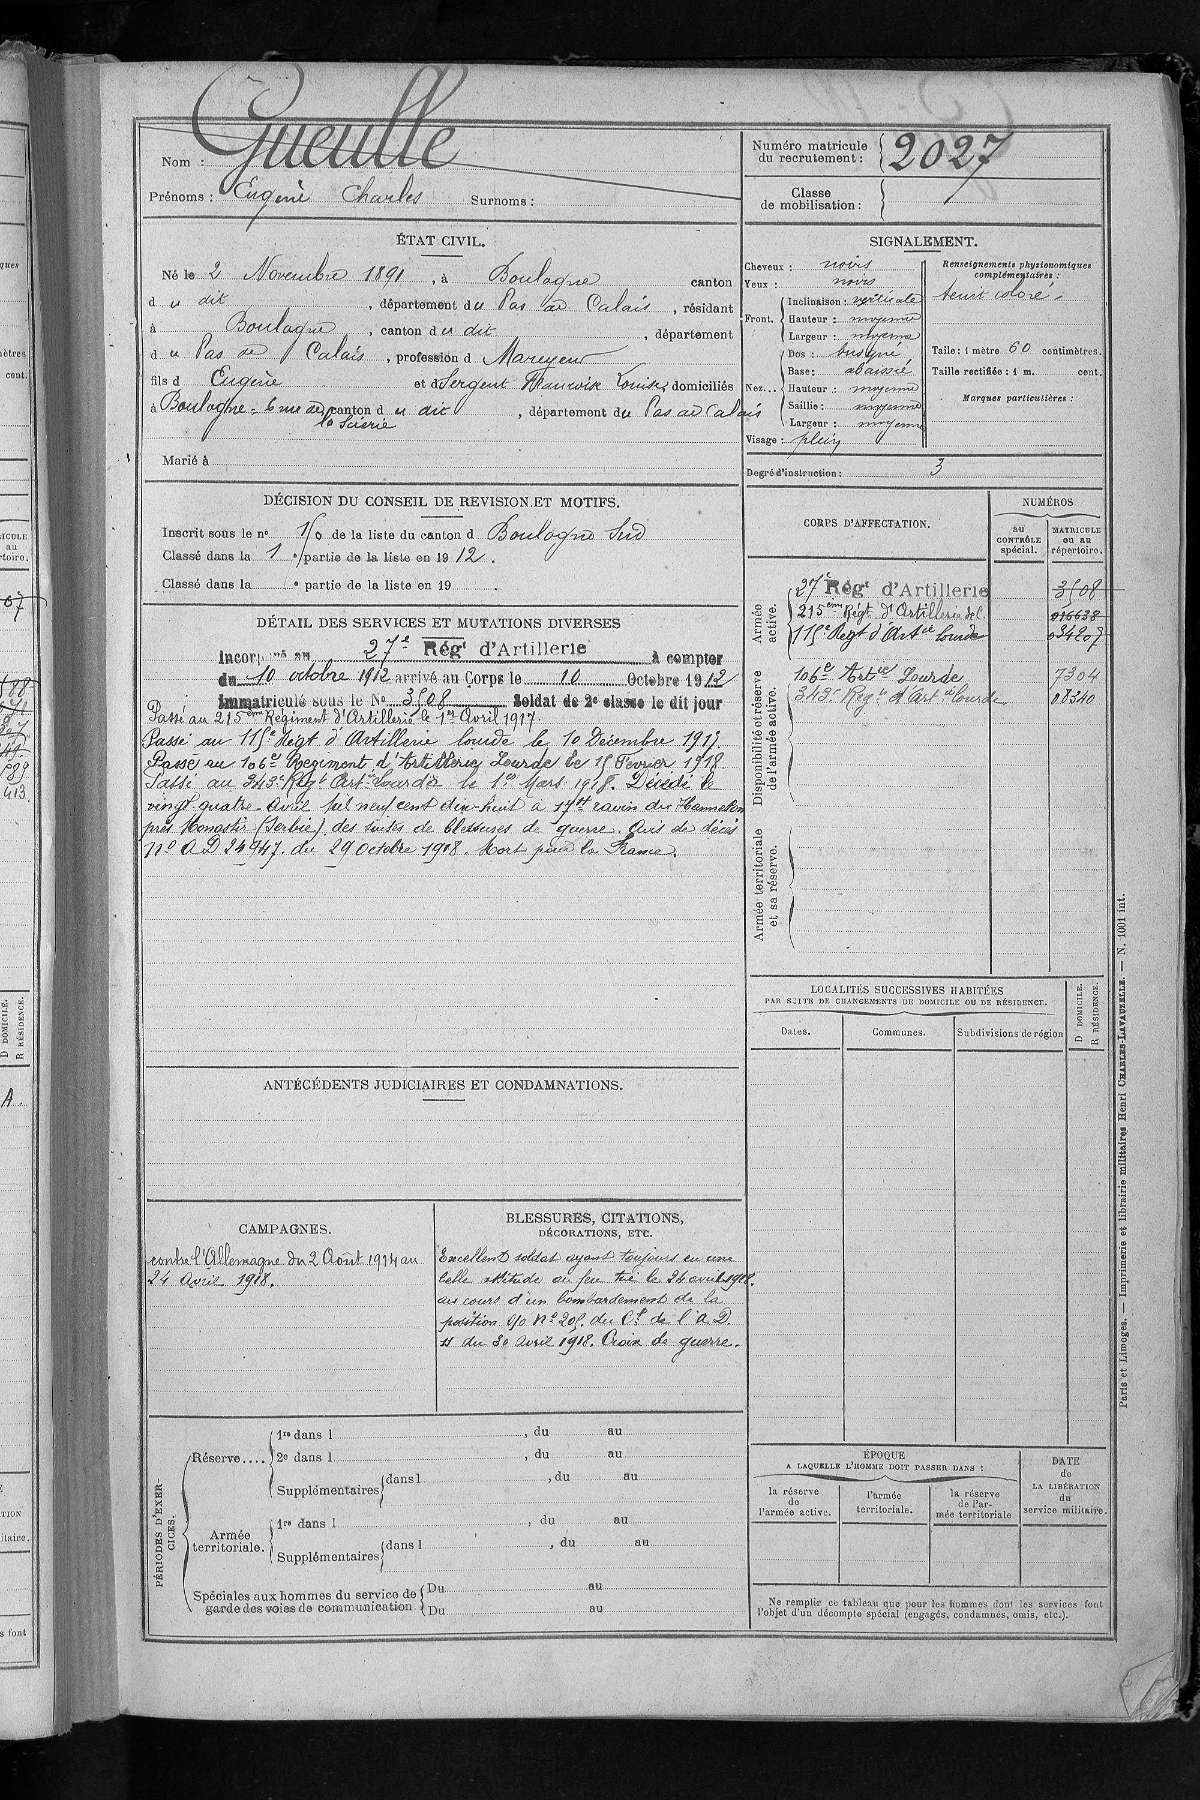 Gueulle
Nom :
Prénoms : Eugène Charles Surnoms :
Numéro matricule du recrutement : 2027
Classe de mobilisation :
ÉTAT CIVIL.
Né le 2 Novembre 1891, à Boulogne canton
du dit, département du Pas de Calais, résidant
à Boulogne, canton du dit, département
du Pas de Calais, profession d Mareyeur
fils d Eugène et d Sergent Françoise Louise domiciliés
à Boulogne - 6 rue de la Scierie canton du dit, département du Pas de Calais
Marié à
SIGNALEMENT.
Cheveux : noirs
Yeux : noirs
Front. Inclinaison : verticale
Hauteur : moyenne
Largeur : moyenne
Nez... Dos : busqué
Base : abaissé
Hauteur : moyenne
Saillie : moyenne
Largeur : moyenne
Visage : plein
Renseignements physionomiques complémentaires :
teint coloré
Taille : 1 mètre 60 centimètres.
Taille rectifiée : 1 m. cent.
Marques particulières :
Degré d'instruction : 3
DÉCISION DU CONSEIL DE REVISION ET MOTIFS.
Inscrit sous le n° de la liste du canton d Boulogne Sud
Classé dans la 1e partie de la liste en 1912.
Classé dans la e partie de la liste en 19
DÉTAIL DES SERVICES ET MUTATIONS DIVERSES
Incorporé au 27e Régt d'Artillerie à compter
du 10 octobre 1912 arrivé au Corps le 10 Octobre 1912
Immatriculé sous le No 3508 Soldat de 2e classe le dit jour
Passé au 215eme Régiment d'Artillerie le 1er Avril 1917
Passé au 115e Régt d'Artillerie lourde le 10 Décembre 1917.
Passé au 106e Régiment d'Artillerie Lourde le 15 Février 1918
Passé au 343e Régt Artie Lourde le 1er Mars 1918. Décédé le
vingt quatre avril mil neuf cent dix huit à 17H ravin du
près Monastir (Serbie) des suites de blessures de guerre. Avis de décès
No AD 24947. du 29 Octobre 1918. Mort pour la France.
CORPS D'AFFECTATION.
NUMÉROS
au CONTRÔLE spécial.
MATRICULE ou au répertoire.
Armée active.
27e Régt d'Artillerie 3508
215eme Régt d'Artillerie de C. 016638
115e Régt d'Artie Lourde 034207
Disponibilité et réserve de l'armée active.
106e Artie Lourde 7304
343e Régt d'Artie Lourde 01340
Armée territoriale et sa réserve.
LOCALITÉS SUCCESSIVES HABITÉES
PAR SUITE DE CHANGEMENTS DE DOMICILE OU DE RÉSIDENCE.
Dates.
Communes.
Subdivisions de région
D DOMICILE.
R RÉSIDENCE.
ANTÉCÉDENTS JUDICIAIRES ET CONDAMNATIONS.
CAMPAGNES.
contre l'Allemagne du 2 Août 1914 au
24 Avril 1918.
BLESSURES, CITATIONS,
DÉCORATIONS, ETC.
Excellent soldat ayant toujours eu une
belle attitude au feu tué le 24 avril 1918.
au cours d'un bombardement de la
position. O/o No 205. du Ct de l'A.D.
du 30 Avril 1918. Croix de guerre.
PÉRIODES D'EXERCICES.
Réserve.... 1re dans l , du au
2e dans l , du au
Supplémentaires dans l , du au
Armée territoriale. 1re dans l , du au
Supplémentaires dans l , du au
Spéciales aux hommes du service de garde des voies de communication Du au
Du au
ÉPOQUE
A LAQUELLE L'HOMME DOIT PASSER DANS :
la réserve de l'armée active.
l'armée territoriale.
la réserve de l'armée territoriale
DATE de LA LIBÉRATION du service militaire.
Ne remplir ce tableau que pour les hommes dont les services font
l'objet d'un décompte spécial (engagés, condamnés, omis, etc.).
Paris et Limoges. — Imprimerie et librairie militaires Henri CHARLES-LAVAUZELLE. — N. 1001 int.